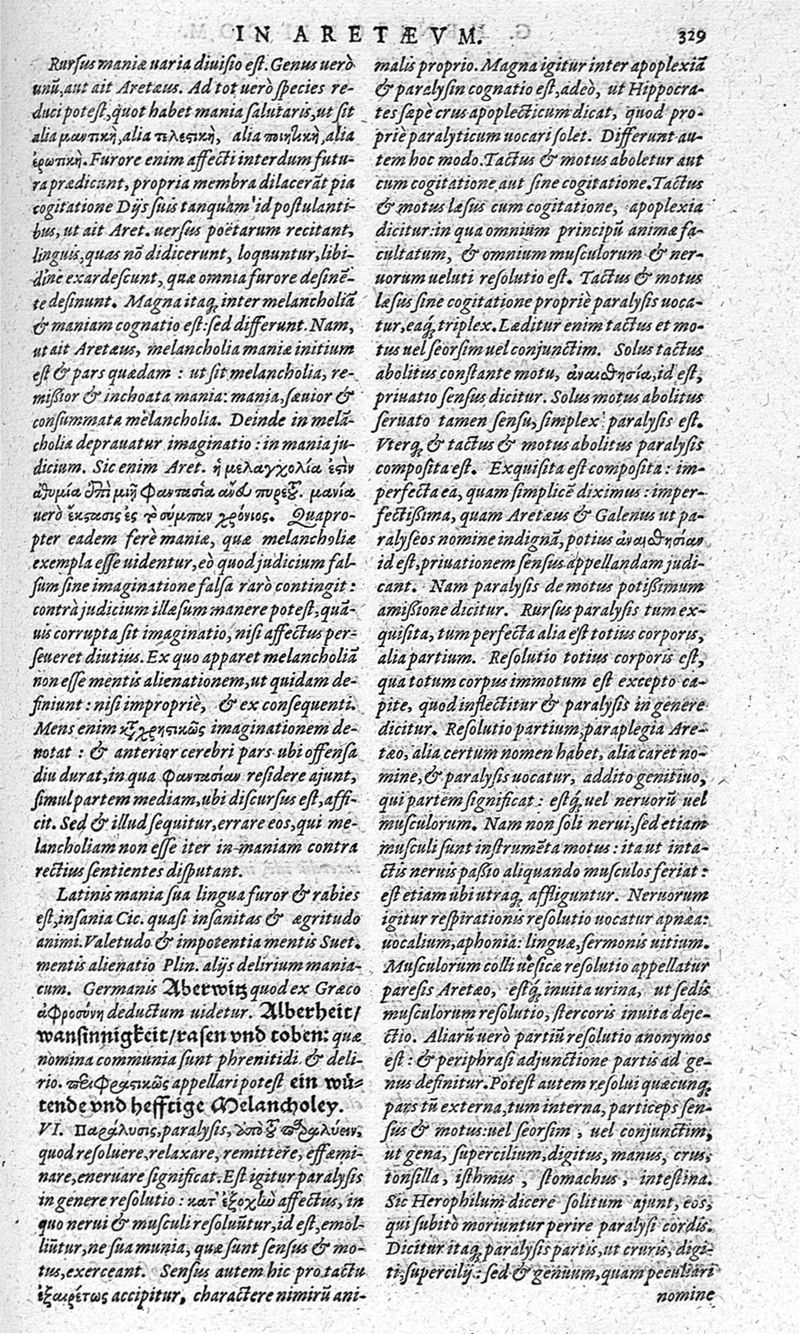 IN ARETÆVM.
329
Rursus maniæ uaria diuisio est. Genus uerò
unũ, aut ait Aretæus. Ad tot uerò species re-
duci potest, quot habet mania salutaris, ut sit
alia μαντικὴ, alia τελεστικὴ, alia ποιητικὴ, alia
ἐρωτικὴ. Furore enim affecti interdum futu-
ra prædicunt, propria membra dilacerãt pia
cogitatione Dijs suis tanquam id postulanti-
bus, ut ait Aret. uersus poëtarum recitant,
linguis, quas nõ didicerunt, loquuntur, libi-
dine exardescunt, quæ omnia furore desinẽ-
te desinunt. Magna itaq; inter melancholiã
& maniam cognatio est: sed differunt. Nam,
ut ait Aretæus, melancholia maniæ initium
est & pars quædam : ut sit melancholia, re-
mißior & inchoata mania: mania, sæuior &
consummata melancholia. Deinde in melã-
cholia deprauatur imaginatio : in mania ju-
dicium. Sic enim Aret. ἡ μελαγχολία ἐστὶν
ἀθυμία ἐπὶ μιῇ φαντασίᾳ ἄνευ πυρετοῦ. μανία
uerò ἔκστασις ἐς τὸ σύμπαν χρόνιος. Quapro-
pter eadem ferè maniæ, quæ melancholiæ
exempla esse uidentur, eò quod judicium fal-
sum sine imaginatione falsa rarò contingit :
contrà judicium illæsum manere potest, quã-
uis corrupta sit imaginatio, nisi affectus per-
seueret diutius. Ex quo apparet melancholiã
non esse mentis alienationem, ut quidam de-
finiunt : nisi impropriè, & ex consequenti.
Mens enim καταχρηστικῶς imaginationem de-
notat : & anterior cerebri pars ubi offensa
diu durat, in qua φαντασίαν residere ajunt,
simul partem mediam, ubi discursus est, affi-
cit. Sed & illud sequitur, errare eos, qui me-
lancholiam non esse iter in maniam contra
rectius sentientes disputant.
Latinis mania sua lingua furor & rabies
est, insania Cic. quasi insanitas & ægritudo
animi. Valetudo & impotentia mentis Suet.
mentis alienatio Plin. alijs delirium mania-
cum. Germanis Aberwitz quod ex Græco
ἀφροσύνη deductum uidetur. Alberheit/
wansinnigkeit/rasen vnd toben: quæ
nomina communia sunt phrenitidi & deli-
rio. περιφραστικῶς appellari potest ein wü-
tende vnd hefftige Melancholey.
VI. Παράλυσις, paralysis, ἀπὸ τοῦ παραλύειν,
quod resoluere, relaxare, remittere, effœmi-
nare, eneruare significat. Est igitur paralysis
in genere resolutio : κατ' ἐξοχὴν affectus, in
quo nerui & musculi resoluũtur, id est, emol-
liũtur, ne sua munia, quæ sunt sensus & mo-
tus, exerceant. Sensus autem hic pro tactu
ἐξαιρέτως accipitur, charactere nimirũ ani-
malis proprio. Magna igitur inter apoplexiã
& paralysin cognatio est, adeò, ut Hippocra-
tes sæpè crus apoplecticum dicat, quod pro-
priè paralyticum uocari solet. Differunt au-
tem hoc modo. Tactus & motus aboletur aut
cum cogitatione aut sine cogitatione. Tactus
& motus læsus cum cogitatione, apoplexia
dicitur: in qua omnium principũ animæ fa-
cultatum, & omnium musculorum & ner-
uorum ueluti resolutio est. Tactus & motus
læsus sine cogitatione propriè paralysis uoca-
tur, eaq; triplex. Læditur enim tactus et mo-
tus uel seorsim uel conjunctim. Solus tactus
abolitus constante motu, ἀναισθησία, id est,
priuatio sensus dicitur. Solus motus abolitus
seruato tamen sensu, simplex paralysis est.
Vterq; & tactus & motus abolitus paralysis
composita est. Exquisita est composita : im-
perfecta ea, quam simplicẽ diximus : imper-
fectißima, quam Aretæus & Galenus ut pa-
ralyseos nomine indignã, potius ἀναισθησίαν
id est, priuationem sensus appellandam judi-
cant. Nam paralysis de motus potißimum
amißione dicitur. Rursus paralysis tum ex-
quisita, tum perfecta alia est totius corporis,
alia partium. Resolutio totius corporis est,
qua totum corpus immotum est excepto ca-
pite, quod inflectitur & paralysis in genere
dicitur. Resolutio partium, paraplegia Are-
tæo, alia certum nomen habet, alia caret no-
mine, & paralysis uocatur, addito genitiuo,
qui partem significat : estq; uel neruorũ uel
musculorum. Nam non soli nerui, sed etiam
musculi sunt instrumẽta motus : ita ut inta-
ctis neruis paßio aliquando musculos feriat :
est etiam ubi utraq; affliguntur. Neruorum
igitur respirationis resolutio uocatur apnœa:
uocalium, aphonia: linguæ, sermonis uitium.
Musculorum colli uesicæ resolutio appellatur
paresis Aretæo, estq; inuita urina, ut sedis
musculorum resolutio, stercoris inuita deje-
ctio. Aliarũ uerò partiũ resolutio anonymos
est : & periphrasi adjunctione partis ad ge-
nus definitur. Potest autem resolui quæcunq;
pars tũ externa, tum interna, particeps sen-
sus & motus: uel seorsim, uel conjunctim,
ut gena, supercilium, digitus, manus, crus,
tonsilla, isthmus, stomachus, intestina.
Sic Herophilum dicere solitum ajunt, eos,
qui subitò moriuntur perire paralysi cordis.
Dicitur itaq; paralysis partis, ut cruris, digi-
ti, supercilij : sed & genuum, quam peculiari
nomine